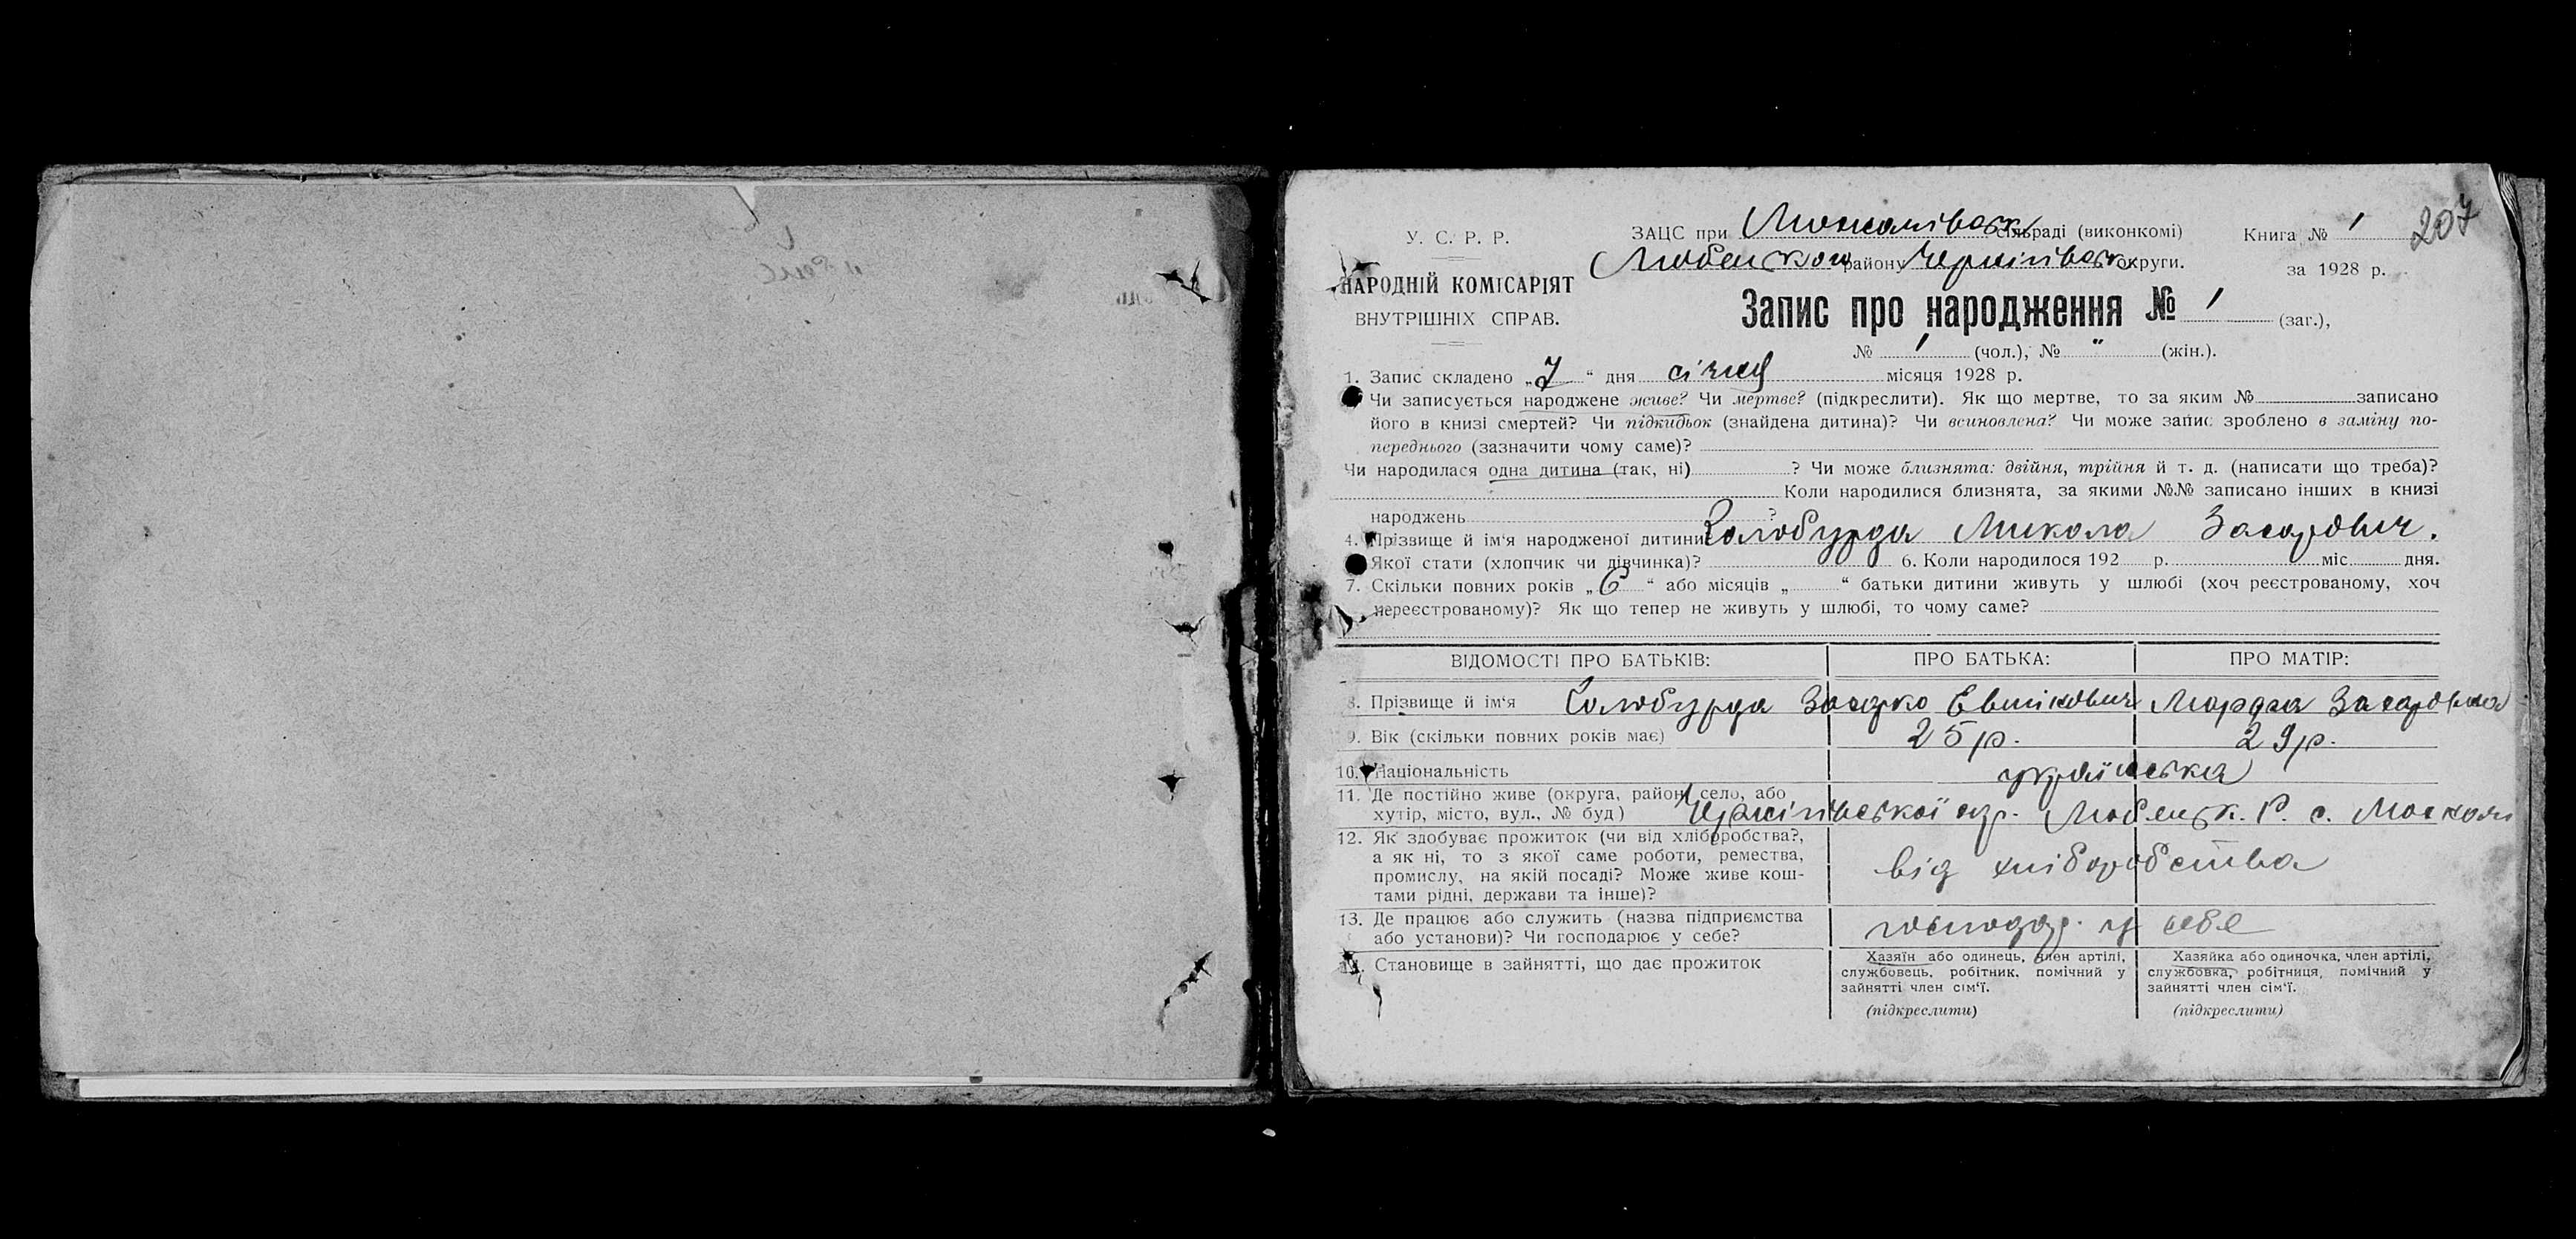 У. С. Р. Р.
НАРОДНІЙ КОМІСАРІЯТ
ВНУТРІШНІХ СПРАВ.
ЗАЦС при Москалівськ сільраді (виконкомі)
Любенськом району Чернігівськ округи.
Книга № 1
207
за 1928 р.
Запис про народження № 1 (заг.),
№ 1 (чол.), № " (жін.).
1. Запис складено „7“ дня січня місяця 1928 р.
Чи записується народжене живе? Чи мертве? (підкреслити). Як що мертве, то за яким № записано
його в книзі смертей? Чи підкидьок (знайдена дитина)? Чи всиновлена? Чи може запис зроблено в заміну по-
переднього (зазначити чому саме)?
Чи народилася одна дитина (так, ні) ? Чи може близнята: двійня, трійня й т. д. (написати що треба)?
Коли народилися близнята, за якими №№ записано інших в книзі
народжень ?
4. Прізвище й ім‘я народженої дитини Голобурда Микола Захарович.
Якої стати (хлопчик чи дівчинка)? 6. Коли народилося 192 р. міс. дня.
7. Скільки повних років „6“ або місяців „ “ батьки дитини живуть у шлюбі (хоч реєстрованому, хоч
нереєстрованому)? Як що тепер не живуть у шлюбі, то чому саме?
ВІДОМОСТІ ПРО БАТЬКІВ: ПРО БАТЬКА: ПРО МАТІР:
8. Прізвище й ім‘я Голобурда Захарко Марфа Захаровна
9. Вік (скільки повних років має) 25 р. 29 р.
10. Національність українська
11. Де постійно живе (округа, район, село, або
хутір, місто, вул., № буд) Чернігівської окр. Любенськ. Р. с. Москалі
12. Як здобуває прожиток (чи від хліборобства?,
а як ні, то з якої саме роботи, ремества,
промислу, на якій посаді? Може живе кош-
тами рідні, держави та інше)?
від хліборобства
13. Де працює або служить (назва підприємства
або установи)? Чи господарює у себе?
господар. у себе
14. Становище в зайнятті, що дає прожиток
Хазяїн або одинець, член артілі,
службовець, робітник, помічний у
зайнятті член сім‘ї.
(підкреслити)
Хазяйка або одиночка, член артілі,
службовка, робітниця, помічний у
зайнятті член сім‘ї.
(підкреслити)